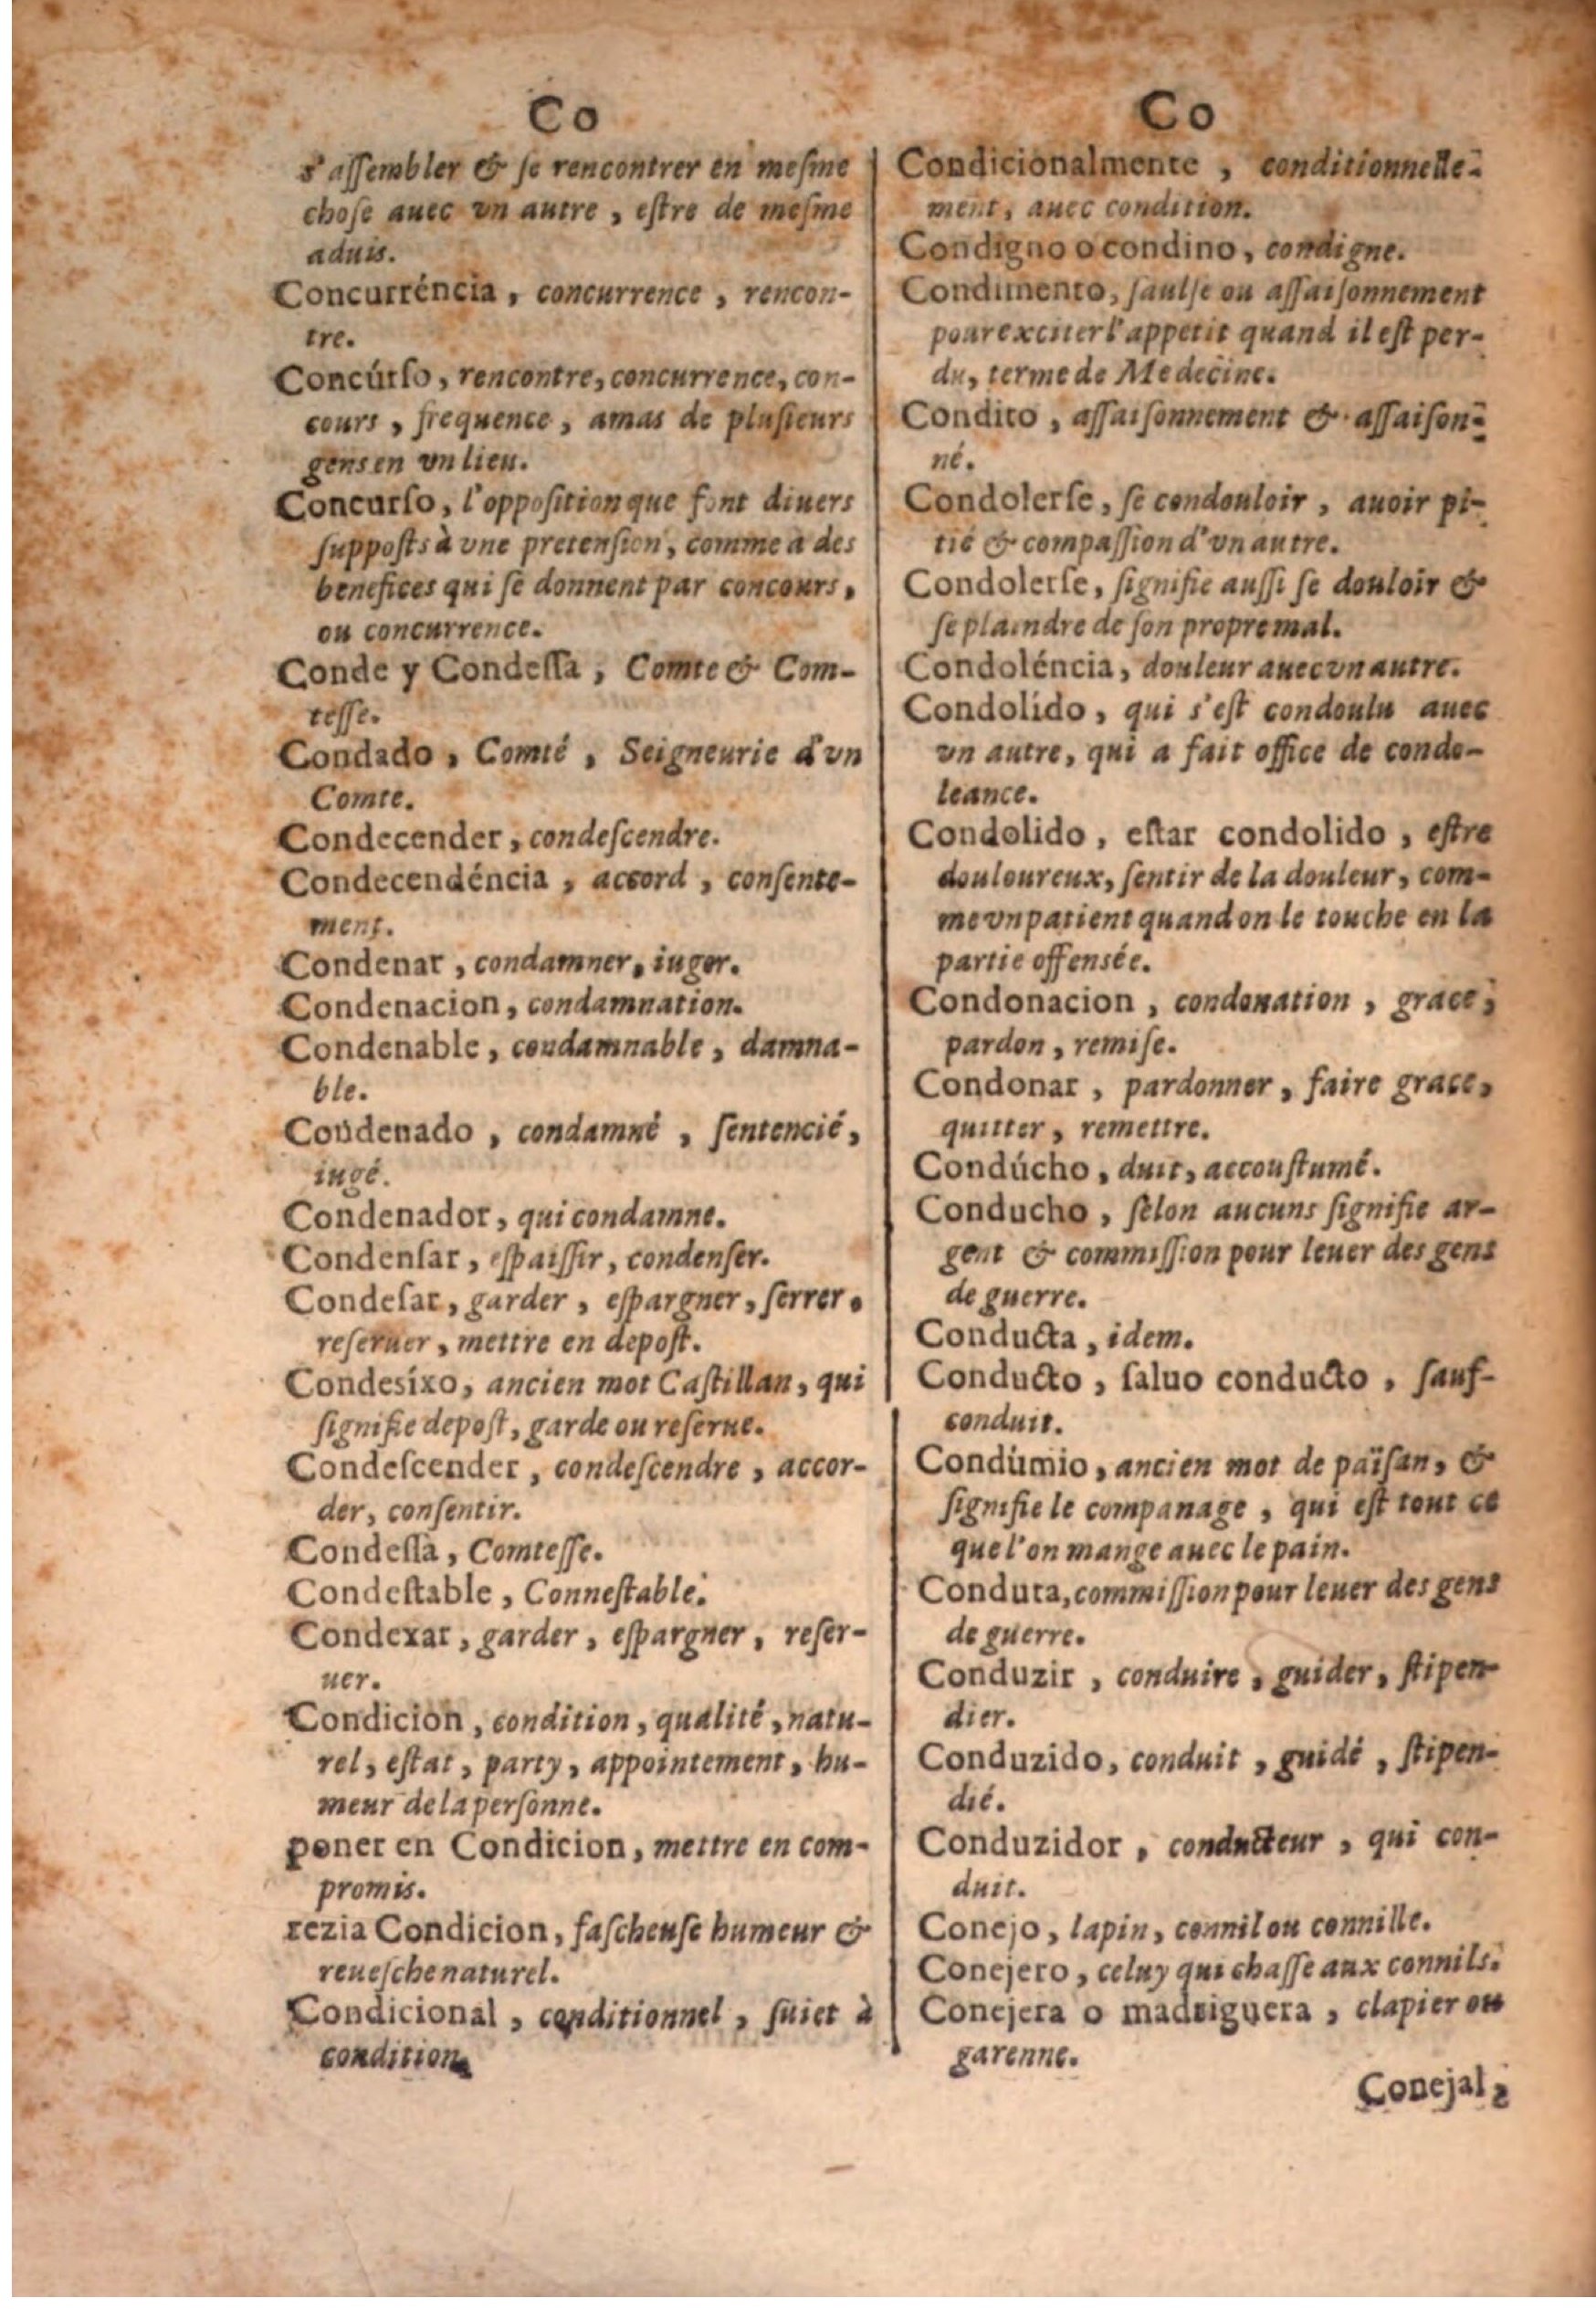 Co
s'aſſembler & ſe rencontrer en meſme
choſe auec vn autre, eſtre de meſme
aduis.
Concurréncia, concurrence, rencon-
tre.
Concúrſo, rencontre, concurrence, con-
cours, frequence, amas de pluſieurs
gens en vn lieu.
Concurſo, l'oppoſition que font diuers
ſuppoſts à vne pretenſion, comme à des
benefices qui ſe donnent par concours,
ou concurrence.
Conde y Condeſſa, Comte & Com-
teſſe.
Condado, Comté, Seigneurie d'vn
Comte.
Condecender, condeſcendre.
Condecendéncia, accord, conſente-
ment.
Condenar, condamner, iuger.
Condenacion, condamnation.
Condenable, condamnable, damna-
ble.
Condenado, condamné, ſentencié,
iugé.
Condenador, qui condamne.
Condenſar, eſpaiſſir, condenſer.
Condeſar, garder, eſpargner, ſerrer,
reſeruer, mettre en depoſt.
Condesíxo, ancien mot Caſtillan, qui
ſignifie depoſt, garde ou reſerue.
Condeſcender, condeſcendre, accor-
der, conſentir.
Condeſſa, Comteſſe.
Condeſtable, Conneſtable.
Condexar, garder, eſpargner, reſer-
uer.
Condicion, condition, qualité, natu-
rel, eſtat, party, appointement, hu-
meur de la perſonne.
poner en Condicion, mettre en com-
promis.
rezia Condicion, faſcheuſe humeur &
reueſche naturel.
Condicional, conditionnel, ſuiet à
condition.
Co
Condicionalmente, conditionnelle-
ment, auec condition.
Condigno o condino, condigne.
Condimento, ſaulſe ou aſſaiſonnement
pour exciter l'appetit quand il eſt per-
du, terme de Medecine.
Condito, aſſaiſonnement & aſſaiſon-
né.
Condolerſe, ſe condouloir, auoir pi-
tié & compaſſion d'vn autre.
Condolerſe, ſignifie auſſi ſe douloir &
ſe plaindre de ſon propre mal.
Condoléncia, douleur auec vn autre.
Condolído, qui s'eſt condoulu auec
vn autre, qui a fait office de condo-
leance.
Condolido, eſtar condolido, eſtre
douloureux, ſentir de la douleur, com-
me vn patient quand on le touche en la
partie offensée.
Condonacion, condonation, grace,
pardon, remiſe.
Condonar, pardonner, faire grace,
quitter, remettre.
Condúcho, duit, accouſtumé.
Conducho, ſelon aucuns ſignifie ar-
gent & commiſſion pour leuer des gens
de guerre.
Conducta, idem.
Conducto, ſaluo conducto, ſauf-
conduit.
Condúmio, ancien mot de païſan, &
ſignifie le companage, qui eſt tout ce
que l'on mange auec le pain.
Conduta, commiſſion pour leuer des gens
de guerre.
Conduzir, conduire, guider, ſtipen-
dier.
Conduzido, conduit, guidé, ſtipen-
dié.
Conduzidor, conducteur, qui con-
duit.
Conejo, lapin, connil ou connille.
Conejero, celuy qui chaſſe aux connils.
Conejera o madriguera, clapier ou
garenne.
Conejal,